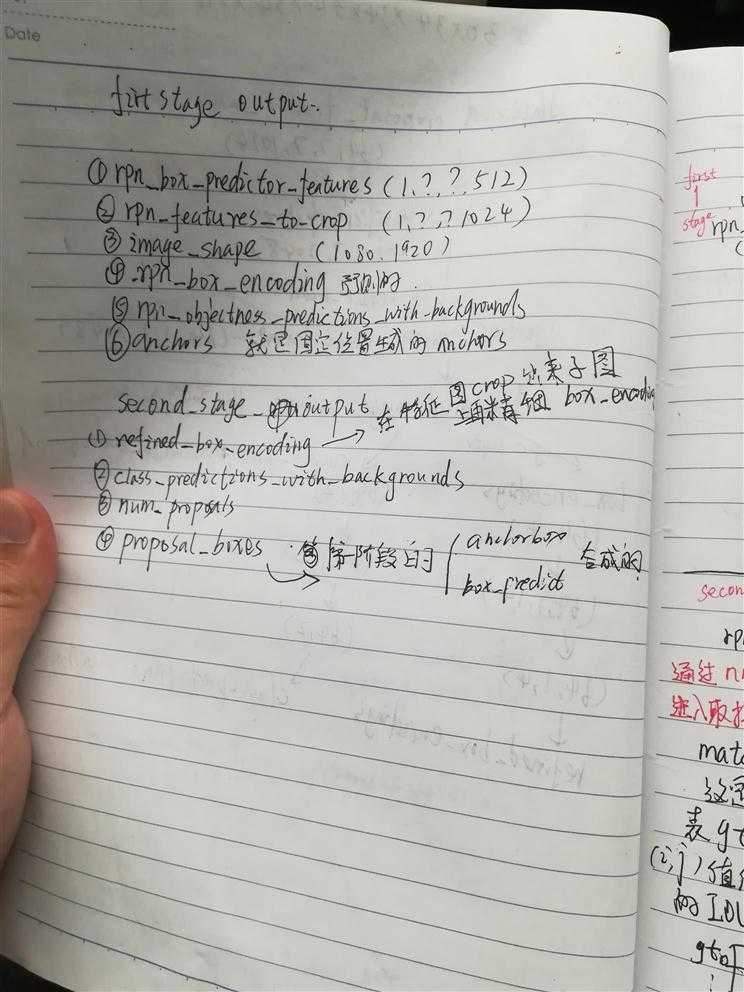 Date
firt stage output.
① rpn_box_predictor_features (1,?,?,512)
② rpn_features_to_crop (1,?,?1024)
③ image_shape (1080,1920)
④ rpn_box_encoding 预测的.
⑤ rpn_objectness_predictions_with_backgrounds
⑥ anchors 就是固定位置生成的 anchors
second_stage_output
① refined_box_encoding → 在特征图crop出来子图
上再来精细 box_encoding
② class_predictions_with_backgrounds
③ num_proposals
④ proposal_boxes 第一阶段的 { anchorbox
box_predict 合成的
first
stage
rpn_
secon
rp
通过 n
进入取
mat
这
表 gt
(i,j) 值
的 IOU
gt_b